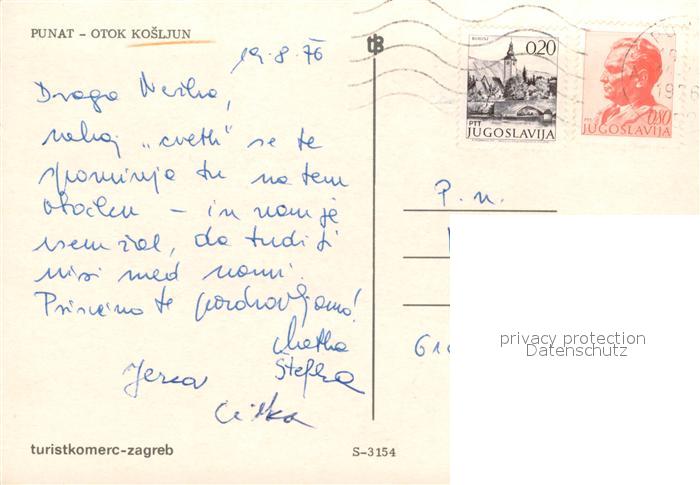 PUNAT - OTOK KOŠLJUN
19.8.76
Draga Nežka,
nekaj „cvetk" se te
spominja tu na tem
otočku – in nam je
vsem žal, da tudi ti
nisi med nami.
Prisrčno te pozdravljamo!
Metka
Štefka
Jerca
Cilka
turistkomerc-zagreb
S-3154
BOHINJ
0,20
PTT
JUGOSLAVIJA
0,80
PTT
JUGOSLAVIJA
1976
P. n.
61
privacy protection
Datenschutz